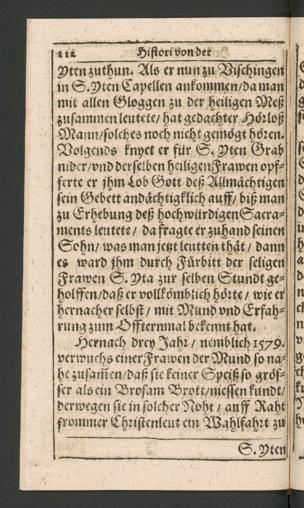 112 Histori von der
Yten zuthun. Als er nun zu Vischingen
in S. Yten Capellen ankommen/da man
mit allen Gloggen zu der heiligen Meß
zusammen leutete/ hat gedachter Hörloß
Mann/solches noch nicht gemögt hören.
Volgends knyet er für S. Yten Grab
nider/vnd derselben heiligen Frawen opf-
ferte er jhm Lob Gott deß Allmächtigen
sein Gebett andächtigklich auff/ biß man
zu Erhebung deß hochwürdigen Sacra-
ments leutete/ da fragte er zuhand seinen
Sohn/ was man jetzt leutten thät/ dann
es ward jhm durch Fürbitt der seligen
Frawen S. Yta zur selben Stundt ge-
holffen/daß er vollkömblich hörte/ wie er
hernacher selbst/ mit Mund vnd Erfah-
rung zum Offternmal bekennt hat.
Hernach drey Jahr/ nemblich 1579.
verwuchs einer Frawen der Mund so na-
he zusam̃en/daß sie keiner Speiß so grös-
ser als ein Brosam Brott/niessen kundt/
derwegen sie in solcher Noht/ auff Raht
frommer Christenleut ein Wahlfahrt zu
S. Yten